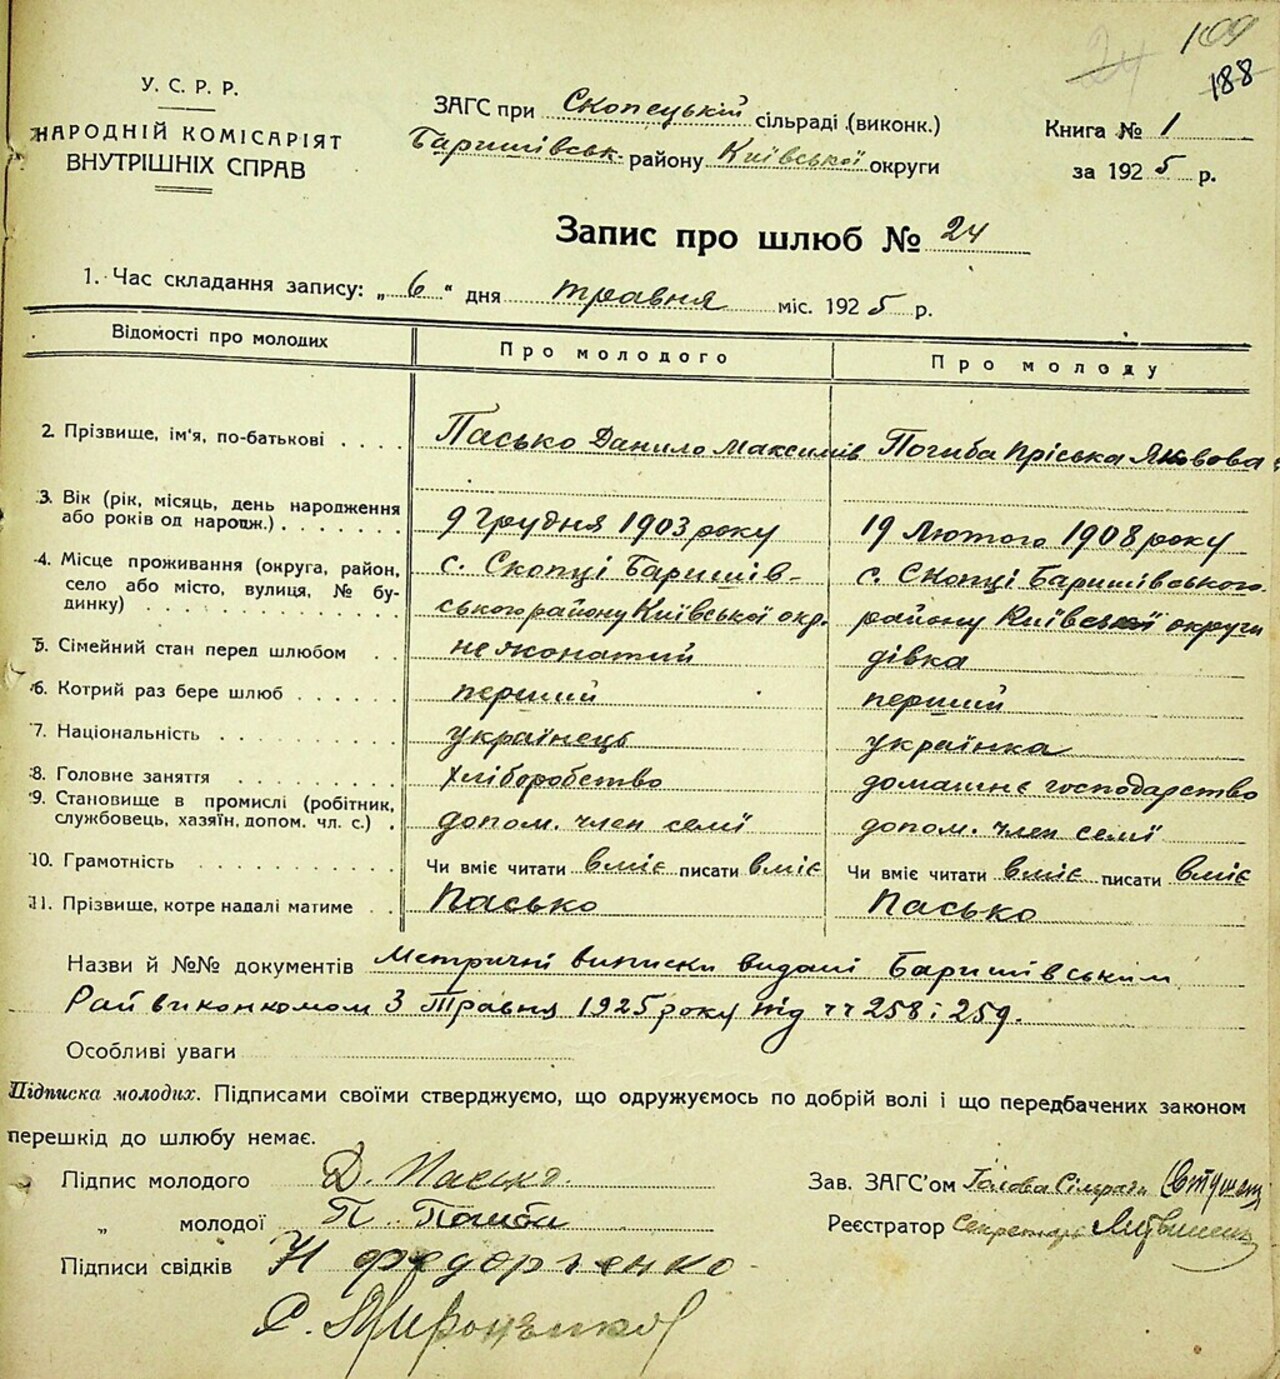 24 109
188
У. С. Р. Р.
НАРОДНІЙ КОМІСАРІЯТ
ВНУТРІШНІХ СПРАВ
ЗАГС при Скопецькій сільраді (виконк.)
Баришівськ. району Київської округи
Книга № 1
за 1925 р.
Запис про шлюб № 24
1. Час складання запису: „6“ дня травня міс. 1925 р.
Відомості про молодих Про молодого Про молоду
2. Прізвище, ім'я, по-батькові . . . . Пасько Данило Максимів Погиба Пріська Яковова
3. Вік (рік, місяць, день народження
або років од народж.) . . . . . . . 9 Грудня 1903 року 19 Лютого 1908 року
4. Місце проживання (округа, район, с. Скопці Баришів- с. Скопці Баришівського
село або місто, вулиця, № бу-
динку) . . . . . . . . . . . . . ського району Київської окр. району Київської округи
5. Сімейний стан перед шлюбом . . нежонатий дівка
6. Котрий раз бере шлюб . . . . . . перший перший
7. Національність . . . . . . . . . . українець українка
8. Головне заняття . . . . . . . . . хліборобство домашнє господарство
9. Становище в промислі (робітник,
службовець, хазяїн, допом. чл. с.) . допом. член семї допом. член семї
10. Грамотність . . . . . . . . . . . Чи вміє читати вміє писати вміє Чи вміє читати вміє писати вміє
11. Прізвище, котре надалі матиме . . Пасько Пасько
Назви й №№ документів Метричні виписки видані Баришівським
Райвиконкомом 3 Травня 1925 року під чч 258 і 259.
Особливі уваги
Підписка молодих. Підписами своїми стверджуємо, що одружуємось по добрій волі і що передбачених законом
перешкід до шлюбу немає.
Підпис молодого Д. Пасько. Зав. ЗАГС'ом Голова Сільради
„ молодої П. Погиба Реєстратор Секретарь
Підписи свідків Н Федорченко